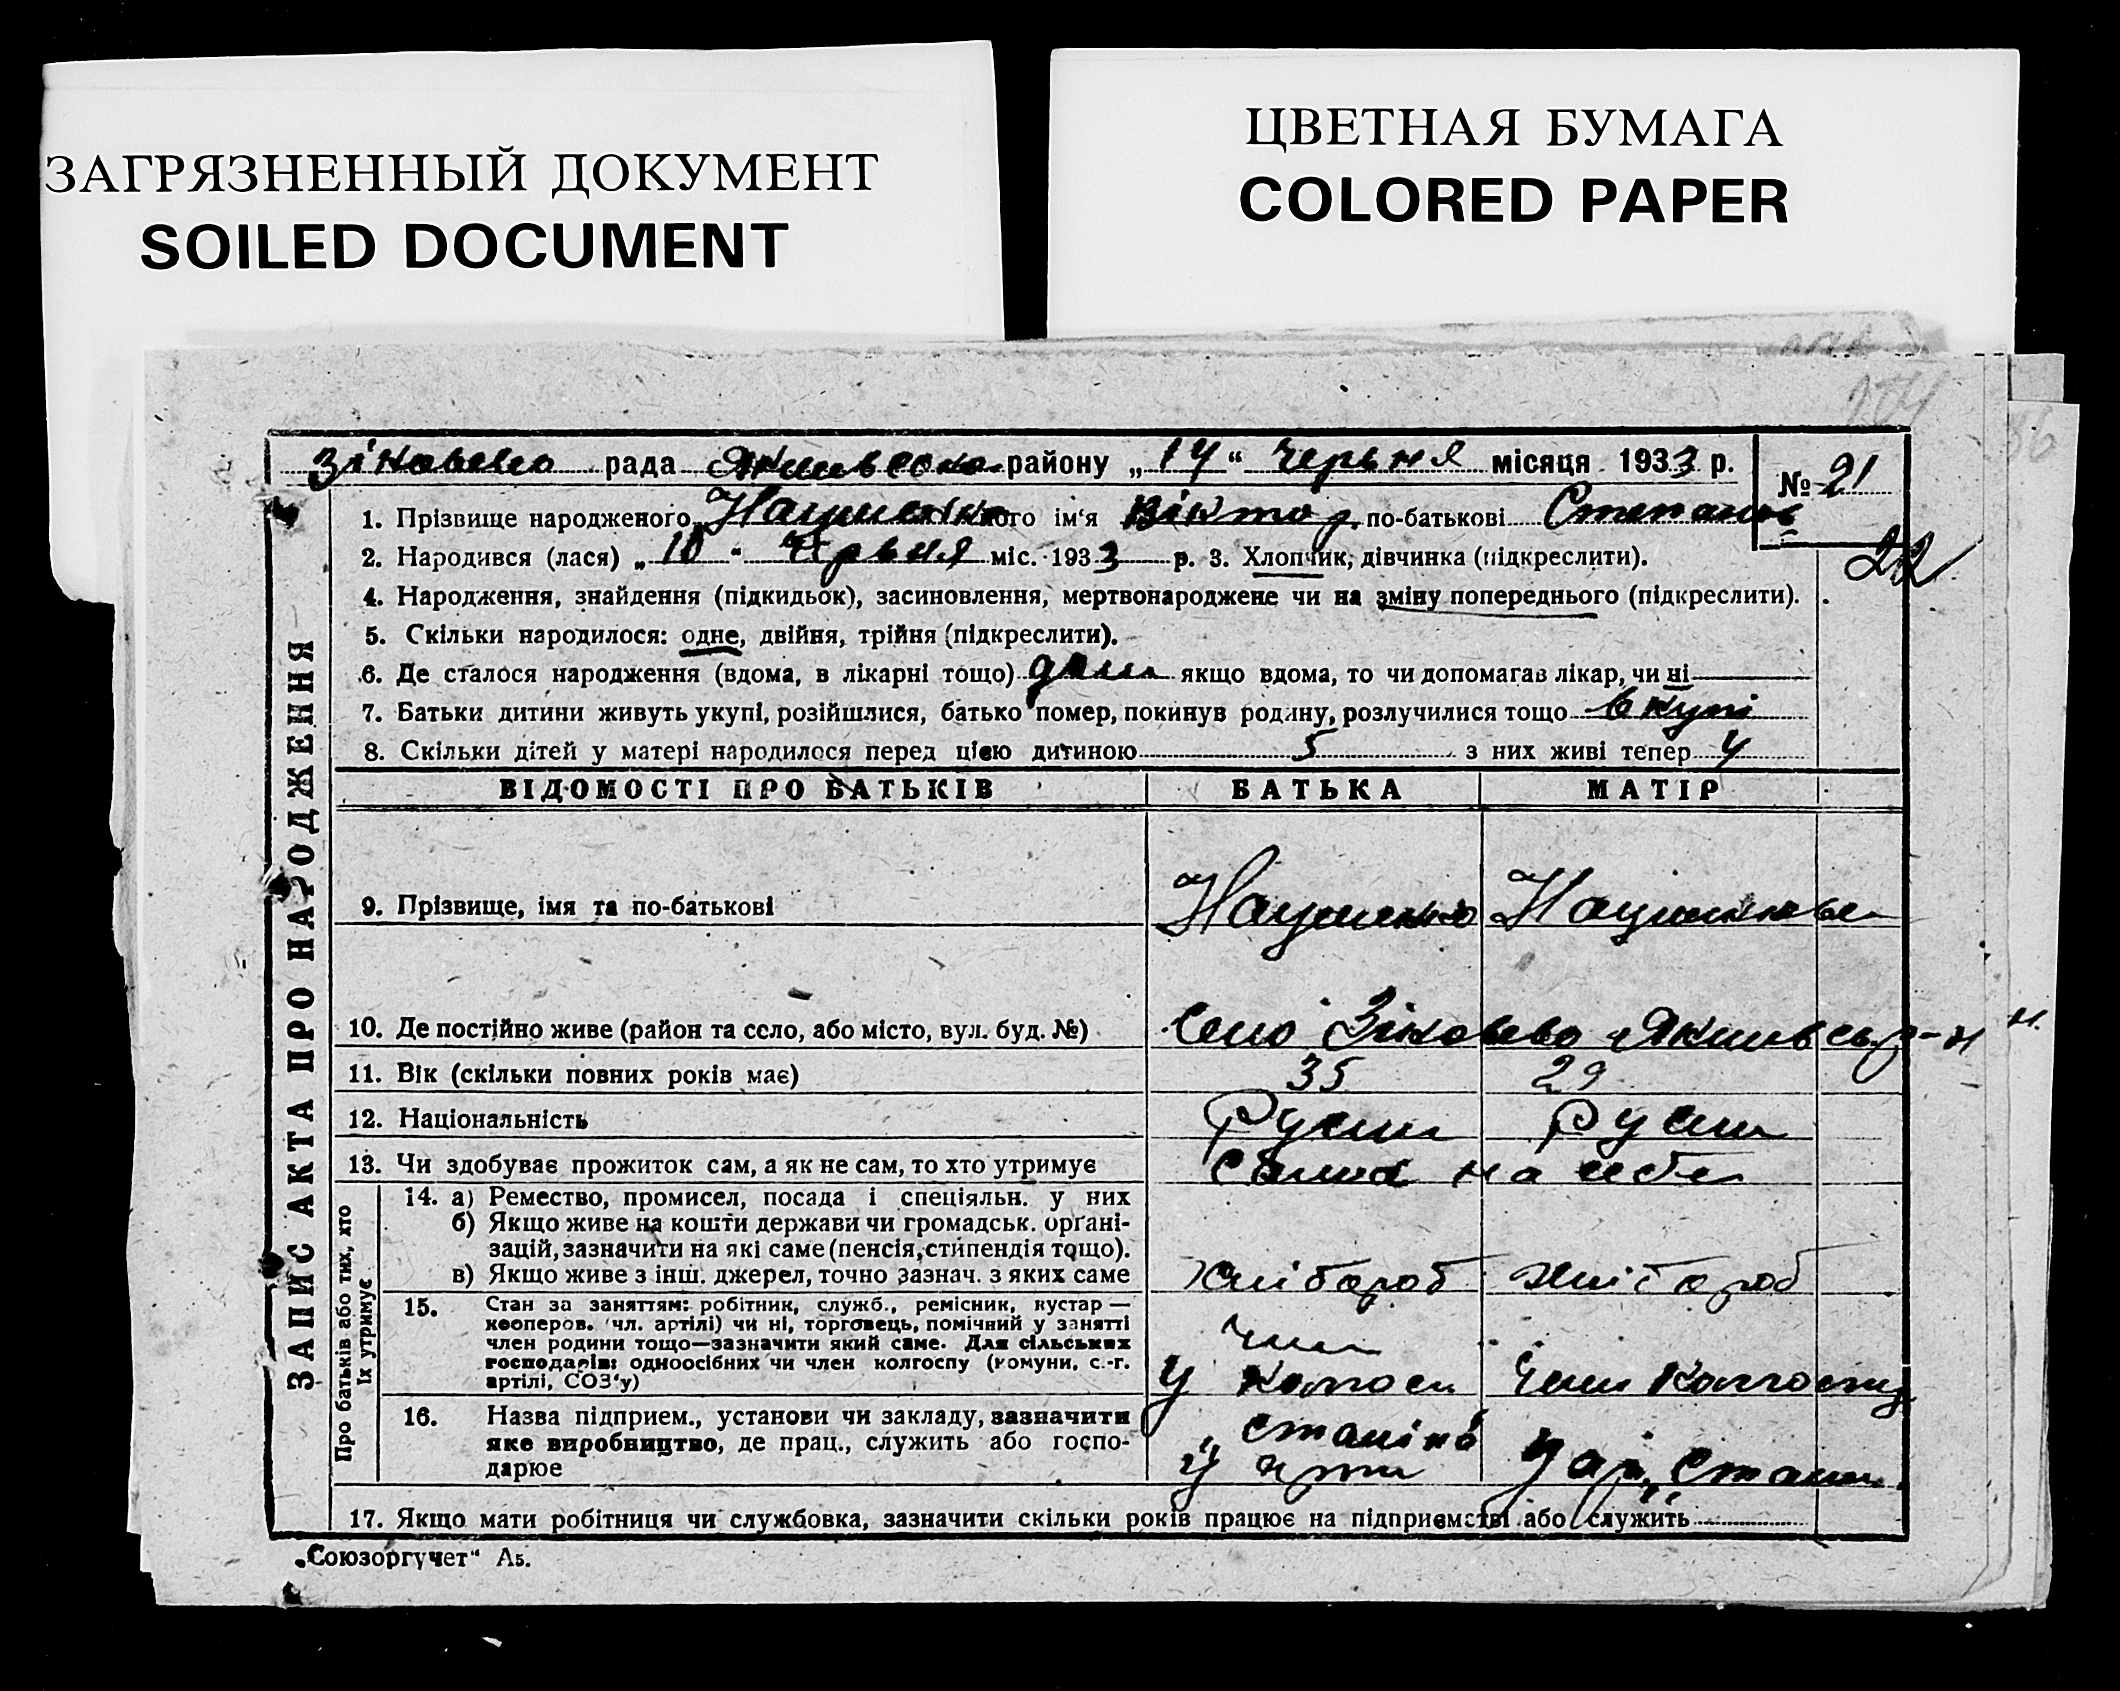 ЗАГРЯЗНЕННЫЙ ДОКУМЕНТ
SOILED DOCUMENT
ЦВЕТНАЯ БУМАГА
COLORED PAPER
204
36
Зіновєво рада району „14“ Червня місяця 1933 р.
№ 21
22
1. Прізвище народженого його ім‘я Віктор по-батькові Степанов
2. Народився (лася) „10“ Червня міс. 1933 р. 3. Хлопчик, дівчинка (підкреслити).
4. Народження, знайдення (підкидьок), засиновлення, мертвонароджене чи на зміну попереднього (підкреслити).
5. Скільки народилося: одне, двійня, трійня (підкреслити).
6. Де сталося народження (вдома, в лікарні тощо) дома якщо вдома, то чи допомагав лікар, чи ні
7. Батьки дитини живуть укупі, розійшлися, батько помер, покинув родину, розлучилися тощо вкупі
8. Скільки дітей у матері народилося перед цією дитиною 5 з них живі тепер 4
ВІДОМОСТІ ПРО БАТЬКІВ БАТЬКА МАТІР
9. Прізвище, імя та по-батькові
10. Де постійно живе (район та село, або місто, вул. буд. №) Село Зіновєво р-н
11. Вік (скільки повних років має) 35 29
12. Національність
13. Чи здобуває прожиток сам, а як не сам, то хто утримує на себе
14. а) Ремество, промисел, посада і спеціяльн. у них
б) Якщо живе на кошти держави чи громадськ. орґані-
зацій, зазначити на які саме (пенсія, стипендія тощо).
в) Якщо живе з інш. джерел, точно зазнач. з яких саме хлібороб хлібороб
15. Стан за заняттям: робітник, служб., ремісник, кустар —
кооперов. чл. артілі) чи ні, торговець, помічний у занятті
член родини тощо—зазначити який саме. Для сільських
господарів: одноосібних чи член колгоспу (комуни, с.-г.
артілі, СОЗ‘у)
Член колгоспу
16. Назва підприєм., установи чи закладу, зазначити
яке виробництво, де прац., служить або госпо-
дарює
17. Якщо мати робітниця чи службовка, зазначити скільки років працює на підприємстві або служить
ЗАПИС АКТА ПРО НАРОДЖЕННЯ
Про батьків або тих, хто
їх утримує
„Союзоргучет“ А5.